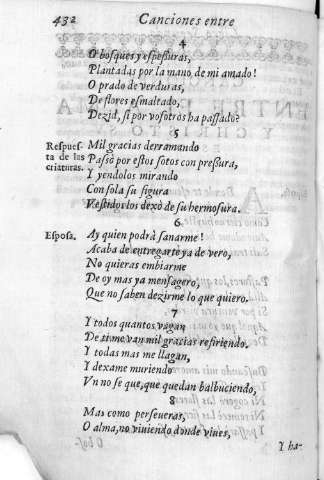 432 Canciones entre
4
O bosques y espeſſuras,
Plantadas por la mano, de mi amado!
O prado de verduras,
De flores eſmaltado,
Dezid, ſi por voſotros ha paſſado?
5
Reſpueſta de las criaturas.
Mil gracias derramando
Paſsò por eſtos ſotos con preſſura,
Y yendolos mirando
Con ſola ſu figura
Veſtidos los dexò de ſu hermoſura.
6
Eſpoſa. Ay quien podrà ſanarme!
Acaba de entregarte ya de vero,
No quieras embiarme
De oy mas ya menſagero,
Que no ſaben dezirme lo que quiero.
7
Y todos quantos vagan
De ti me van mil gracias refiriendo.
Y todas mas me llagan,
Y dexame muriendo
Vn no ſe que, que quedan balbuciendo,
8
Mas como perſeueras,
O alma, no viuiendo donde viues,
Y ha-